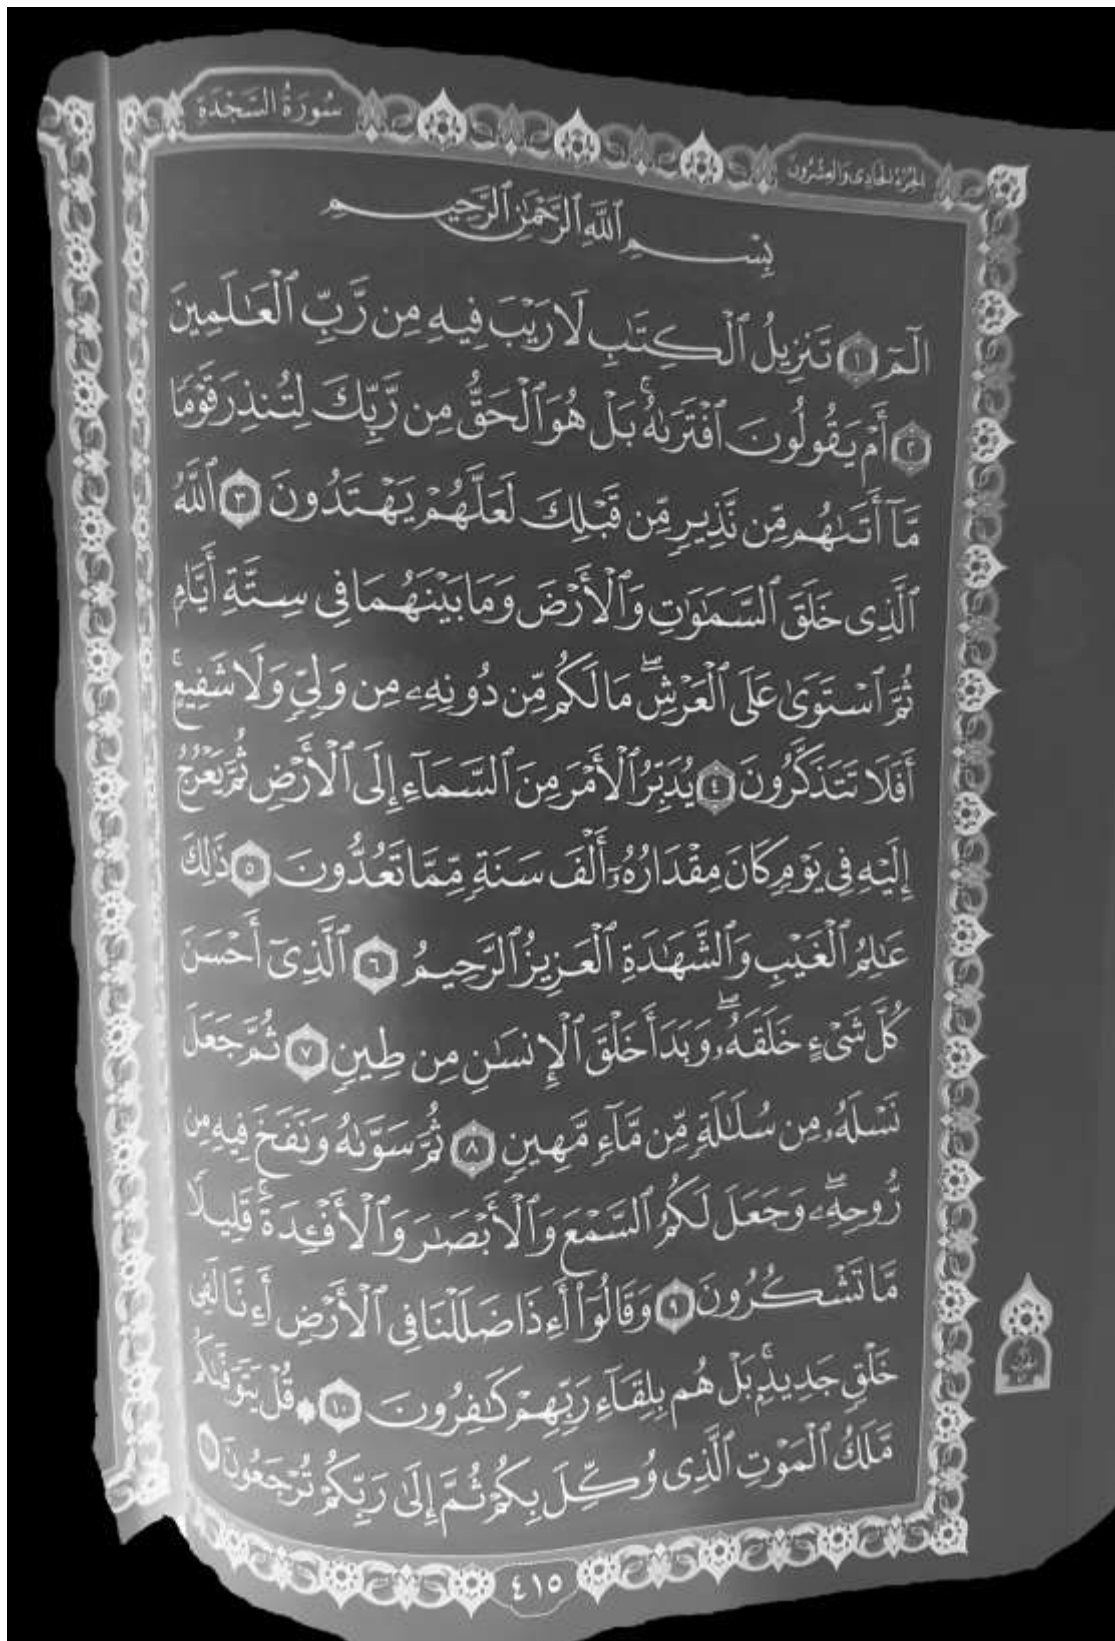 سُورَةُ السَّجْدَةِ
الجُزْءُ الحَادِى وَالعِشْرُونَ
بِسْمِ ٱللَّهِ ٱلرَّحْمَٰنِ ٱلرَّحِيمِ
الٓمٓ ١ تَنزِيلُ ٱلْكِتَٰبِ لَا رَيْبَ فِيهِ مِن رَّبِّ ٱلْعَٰلَمِينَ
٢ أَمْ يَقُولُونَ ٱفْتَرَىٰهُۚ بَلْ هُوَ ٱلْحَقُّ مِن رَّبِّكَ لِتُنذِرَ قَوْمًا
مَّآ أَتَىٰهُم مِّن نَّذِيرٍ مِّن قَبْلِكَ لَعَلَّهُمْ يَهْتَدُونَ ٣ ٱللَّهُ
ٱلَّذِى خَلَقَ ٱلسَّمَٰوَٰتِ وَٱلْأَرْضَ وَمَا بَيْنَهُمَا فِى سِتَّةِ أَيَّامٍ
ثُمَّ ٱسْتَوَىٰ عَلَى ٱلْعَرْشِۖ مَا لَكُم مِّن دُونِهِۦ مِن وَلِىٍّ وَلَا شَفِيعٍۚ
أَفَلَا تَتَذَكَّرُونَ ٤ يُدَبِّرُ ٱلْأَمْرَ مِنَ ٱلسَّمَآءِ إِلَى ٱلْأَرْضِ ثُمَّ يَعْرُجُ
إِلَيْهِ فِى يَوْمٍ كَانَ مِقْدَارُهُۥٓ أَلْفَ سَنَةٍ مِّمَّا تَعُدُّونَ ٥ ذَٰلِكَ
عَٰلِمُ ٱلْغَيْبِ وَٱلشَّهَٰدَةِ ٱلْعَزِيزُ ٱلرَّحِيمُ ٦ ٱلَّذِىٓ أَحْسَنَ
كُلَّ شَىْءٍ خَلَقَهُۥۖ وَبَدَأَ خَلْقَ ٱلْإِنسَٰنِ مِن طِينٍ ٧ ثُمَّ جَعَلَ
نَسْلَهُۥ مِن سُلَٰلَةٍ مِّن مَّآءٍ مَّهِينٍ ٨ ثُمَّ سَوَّىٰهُ وَنَفَخَ فِيهِ مِن
رُّوحِهِۦۖ وَجَعَلَ لَكُمُ ٱلسَّمْعَ وَٱلْأَبْصَٰرَ وَٱلْأَفْـِٔدَةَۚ قَلِيلًا
مَّا تَشْكُرُونَ ٩ وَقَالُوٓا۟ أَءِذَا ضَلَلْنَا فِى ٱلْأَرْضِ أَءِنَّا لَفِى
خَلْقٍ جَدِيدٍۭۚ بَلْ هُم بِلِقَآءِ رَبِّهِمْ كَٰفِرُونَ ١٠ ۞ قُلْ يَتَوَفَّىٰكُم
مَّلَكُ ٱلْمَوْتِ ٱلَّذِى وُكِّلَ بِكُمْ ثُمَّ إِلَىٰ رَبِّكُمْ تُرْجَعُونَ
٤١٥